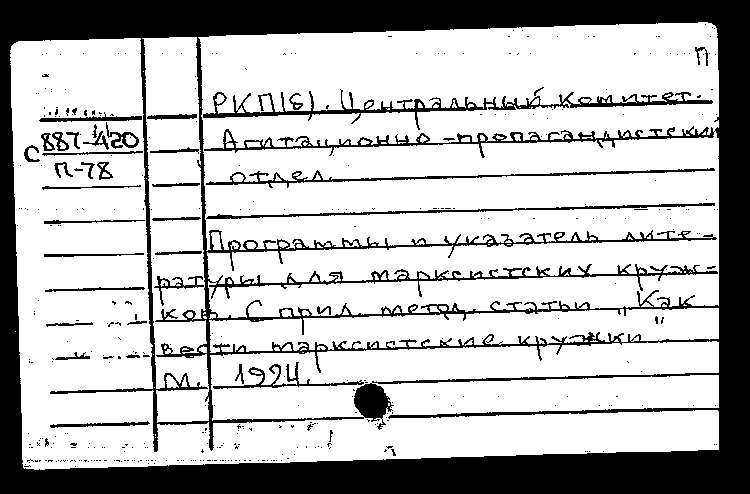 П
РКП(б). Центральный комитет.
Агитационно-пропагандистский
отдел.
С 887-420
П-78
Программы и указатель лите-
ратуры для марксистских круж-
ков. С прил. метод. статьи „Как
вести марксистские кружки"
М. 1924.